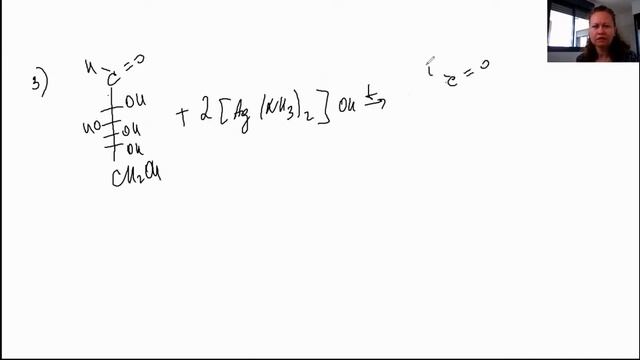 3)
H
C=O
OH
HO
OH
OH
CH₂OH
+ 2 [Ag (NH₃)₂] OH t →
C=O